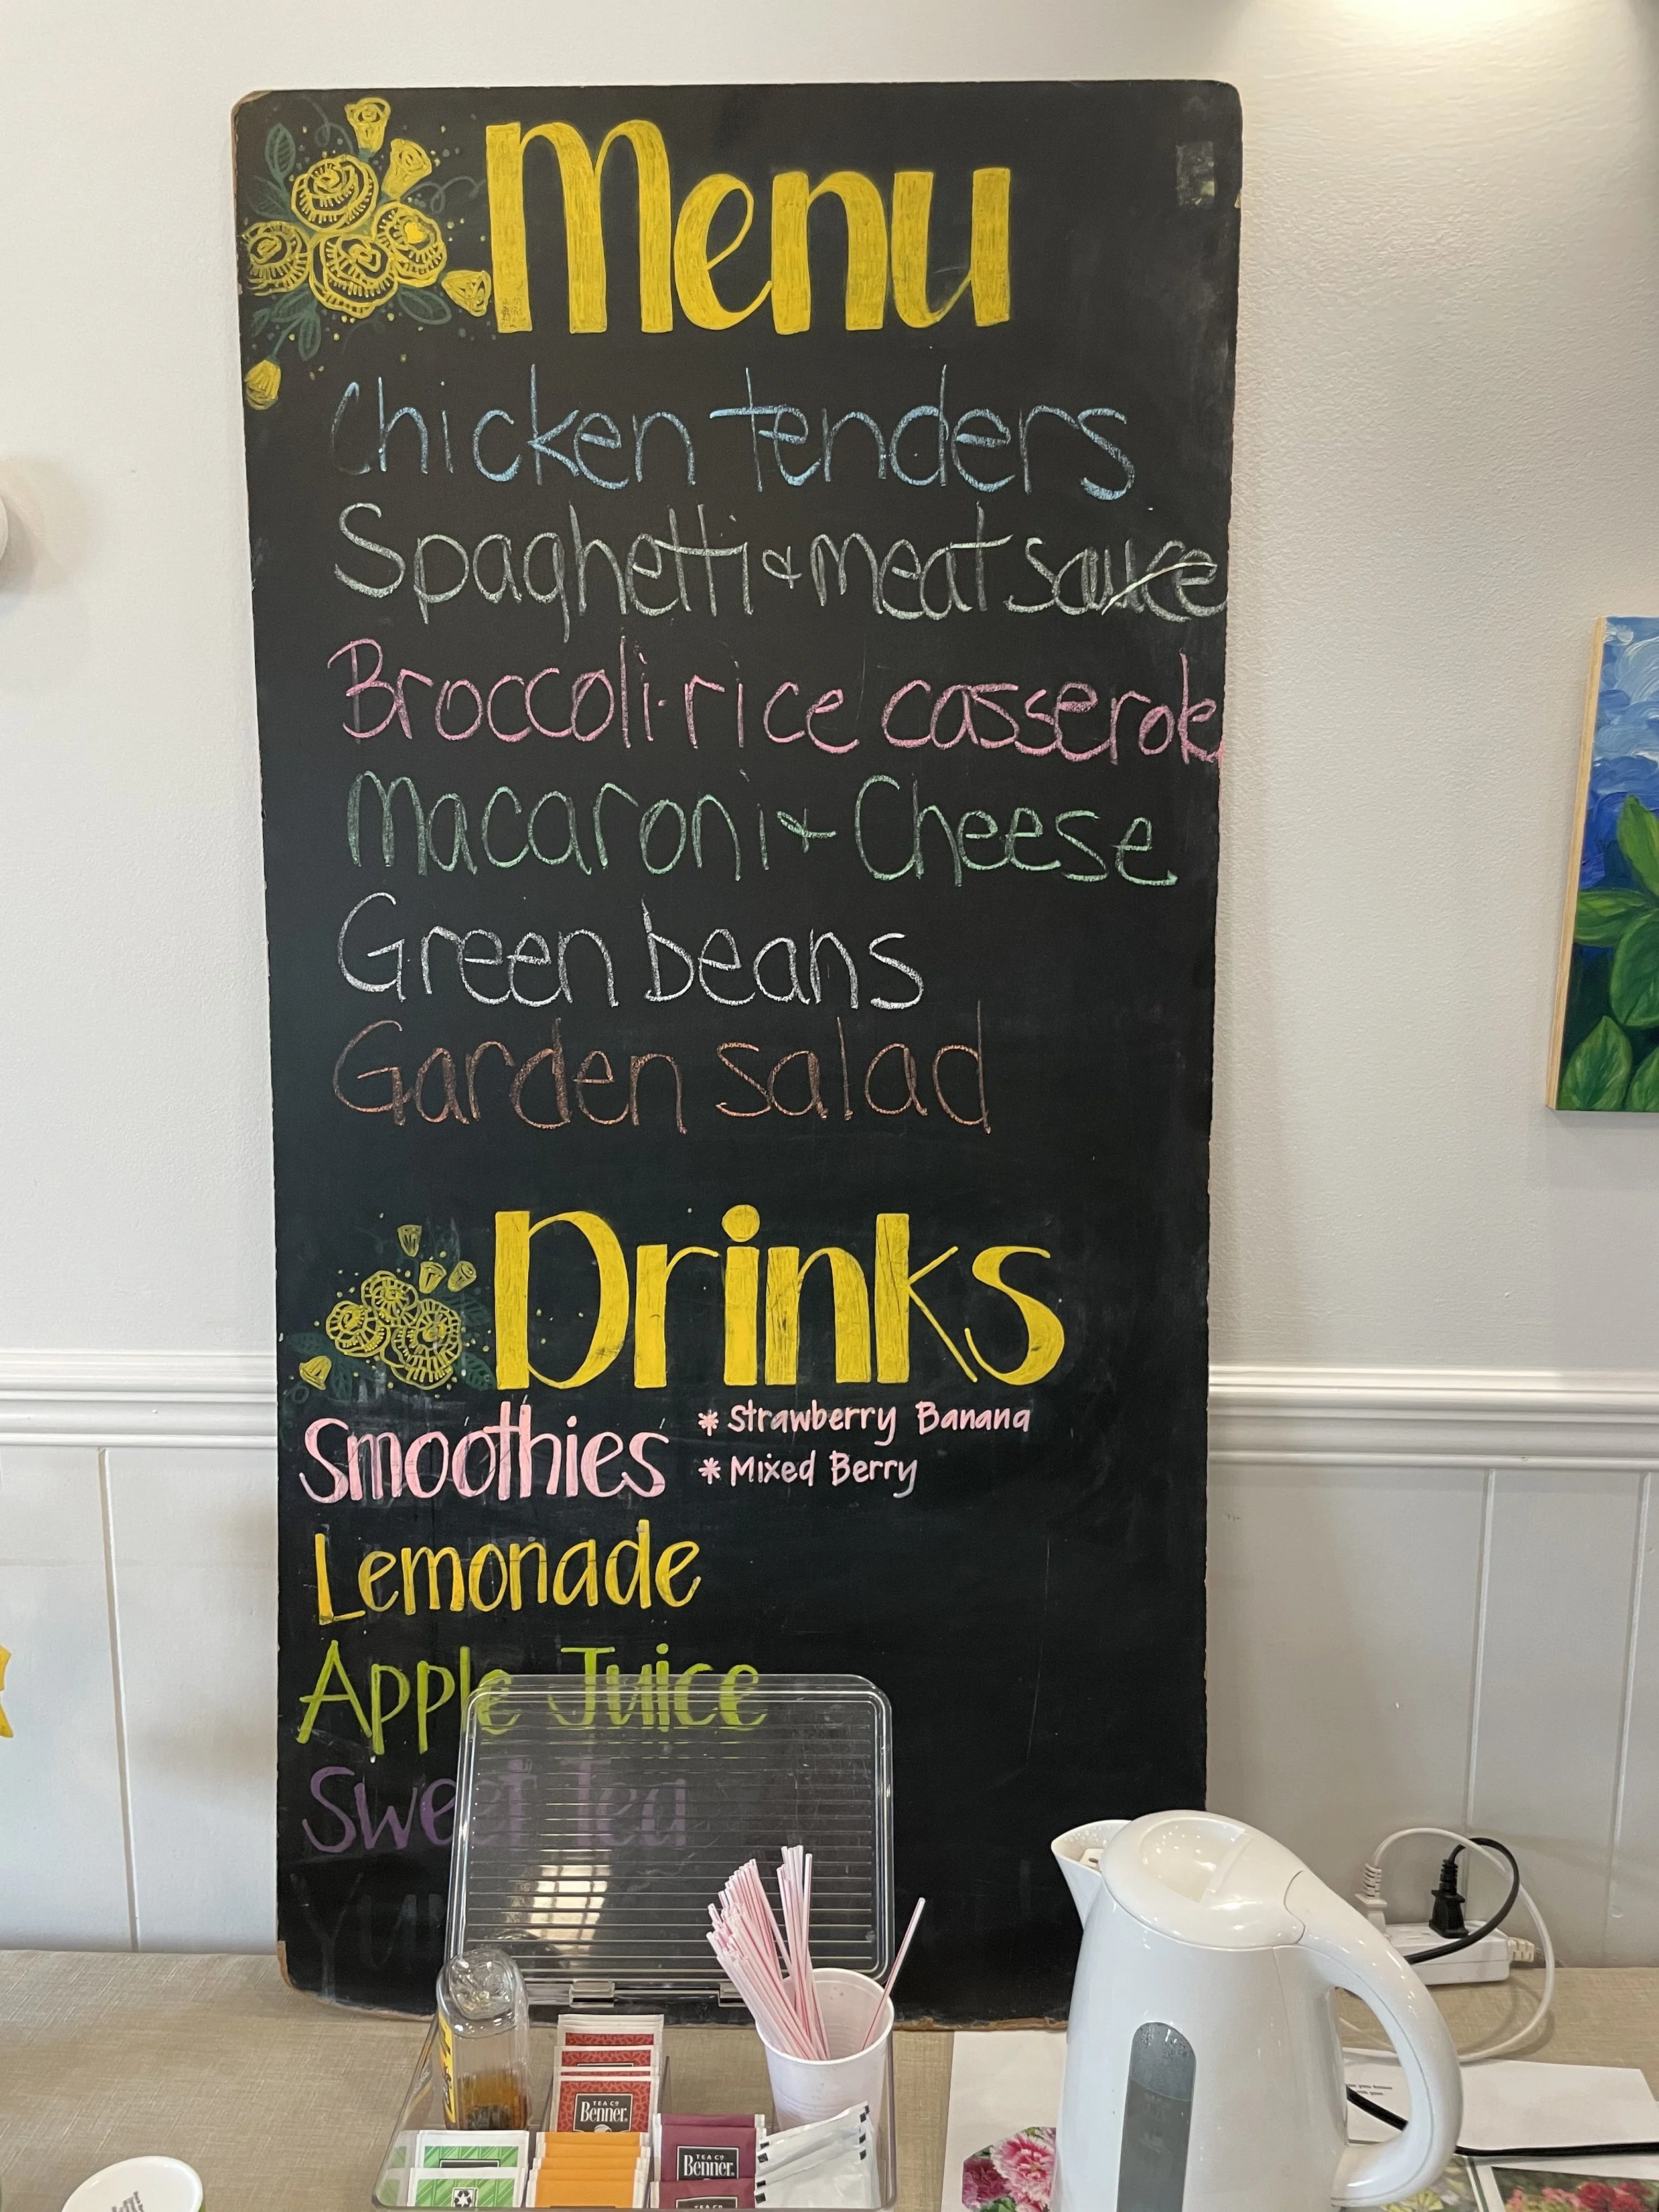 Menu
Chicken tenders
Spaghetti & meat sauce
Broccoli-rice casserole
Macaroni & Cheese
Green beans
Garden salad
Drinks
Smoothies * Strawberry Banana
* Mixed Berry
Lemonade
Apple Juice
Sweet Tea
TEA CO
Benner
TEA CO
Benner
TEA CO